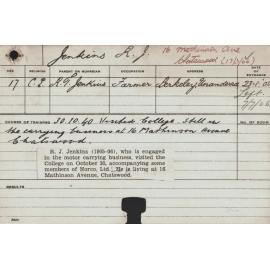 Jenkins R. J. 16 Mathinson Ave
Chatswood (17/
AGE RELIGION PARENT OR GUARDIAN OCCUPATION ADDRESS DATE OF ENTRANCE
17 C.E. Jenkins Farmer Berkeley Unanderra
Left
COURSE OF TRAINING 30.10.40 Visited College. Still in
the carrying business at 16 Mathinson Avenue
Chatswood.
R. J. Jenkins (1905-06), who is engaged
in the motor carrying business, visited the
College on October 30, accompanied by some
members of Norco, Ltd. He is living at 16
Mathinson Avenue, Chatswood.
RESULTS